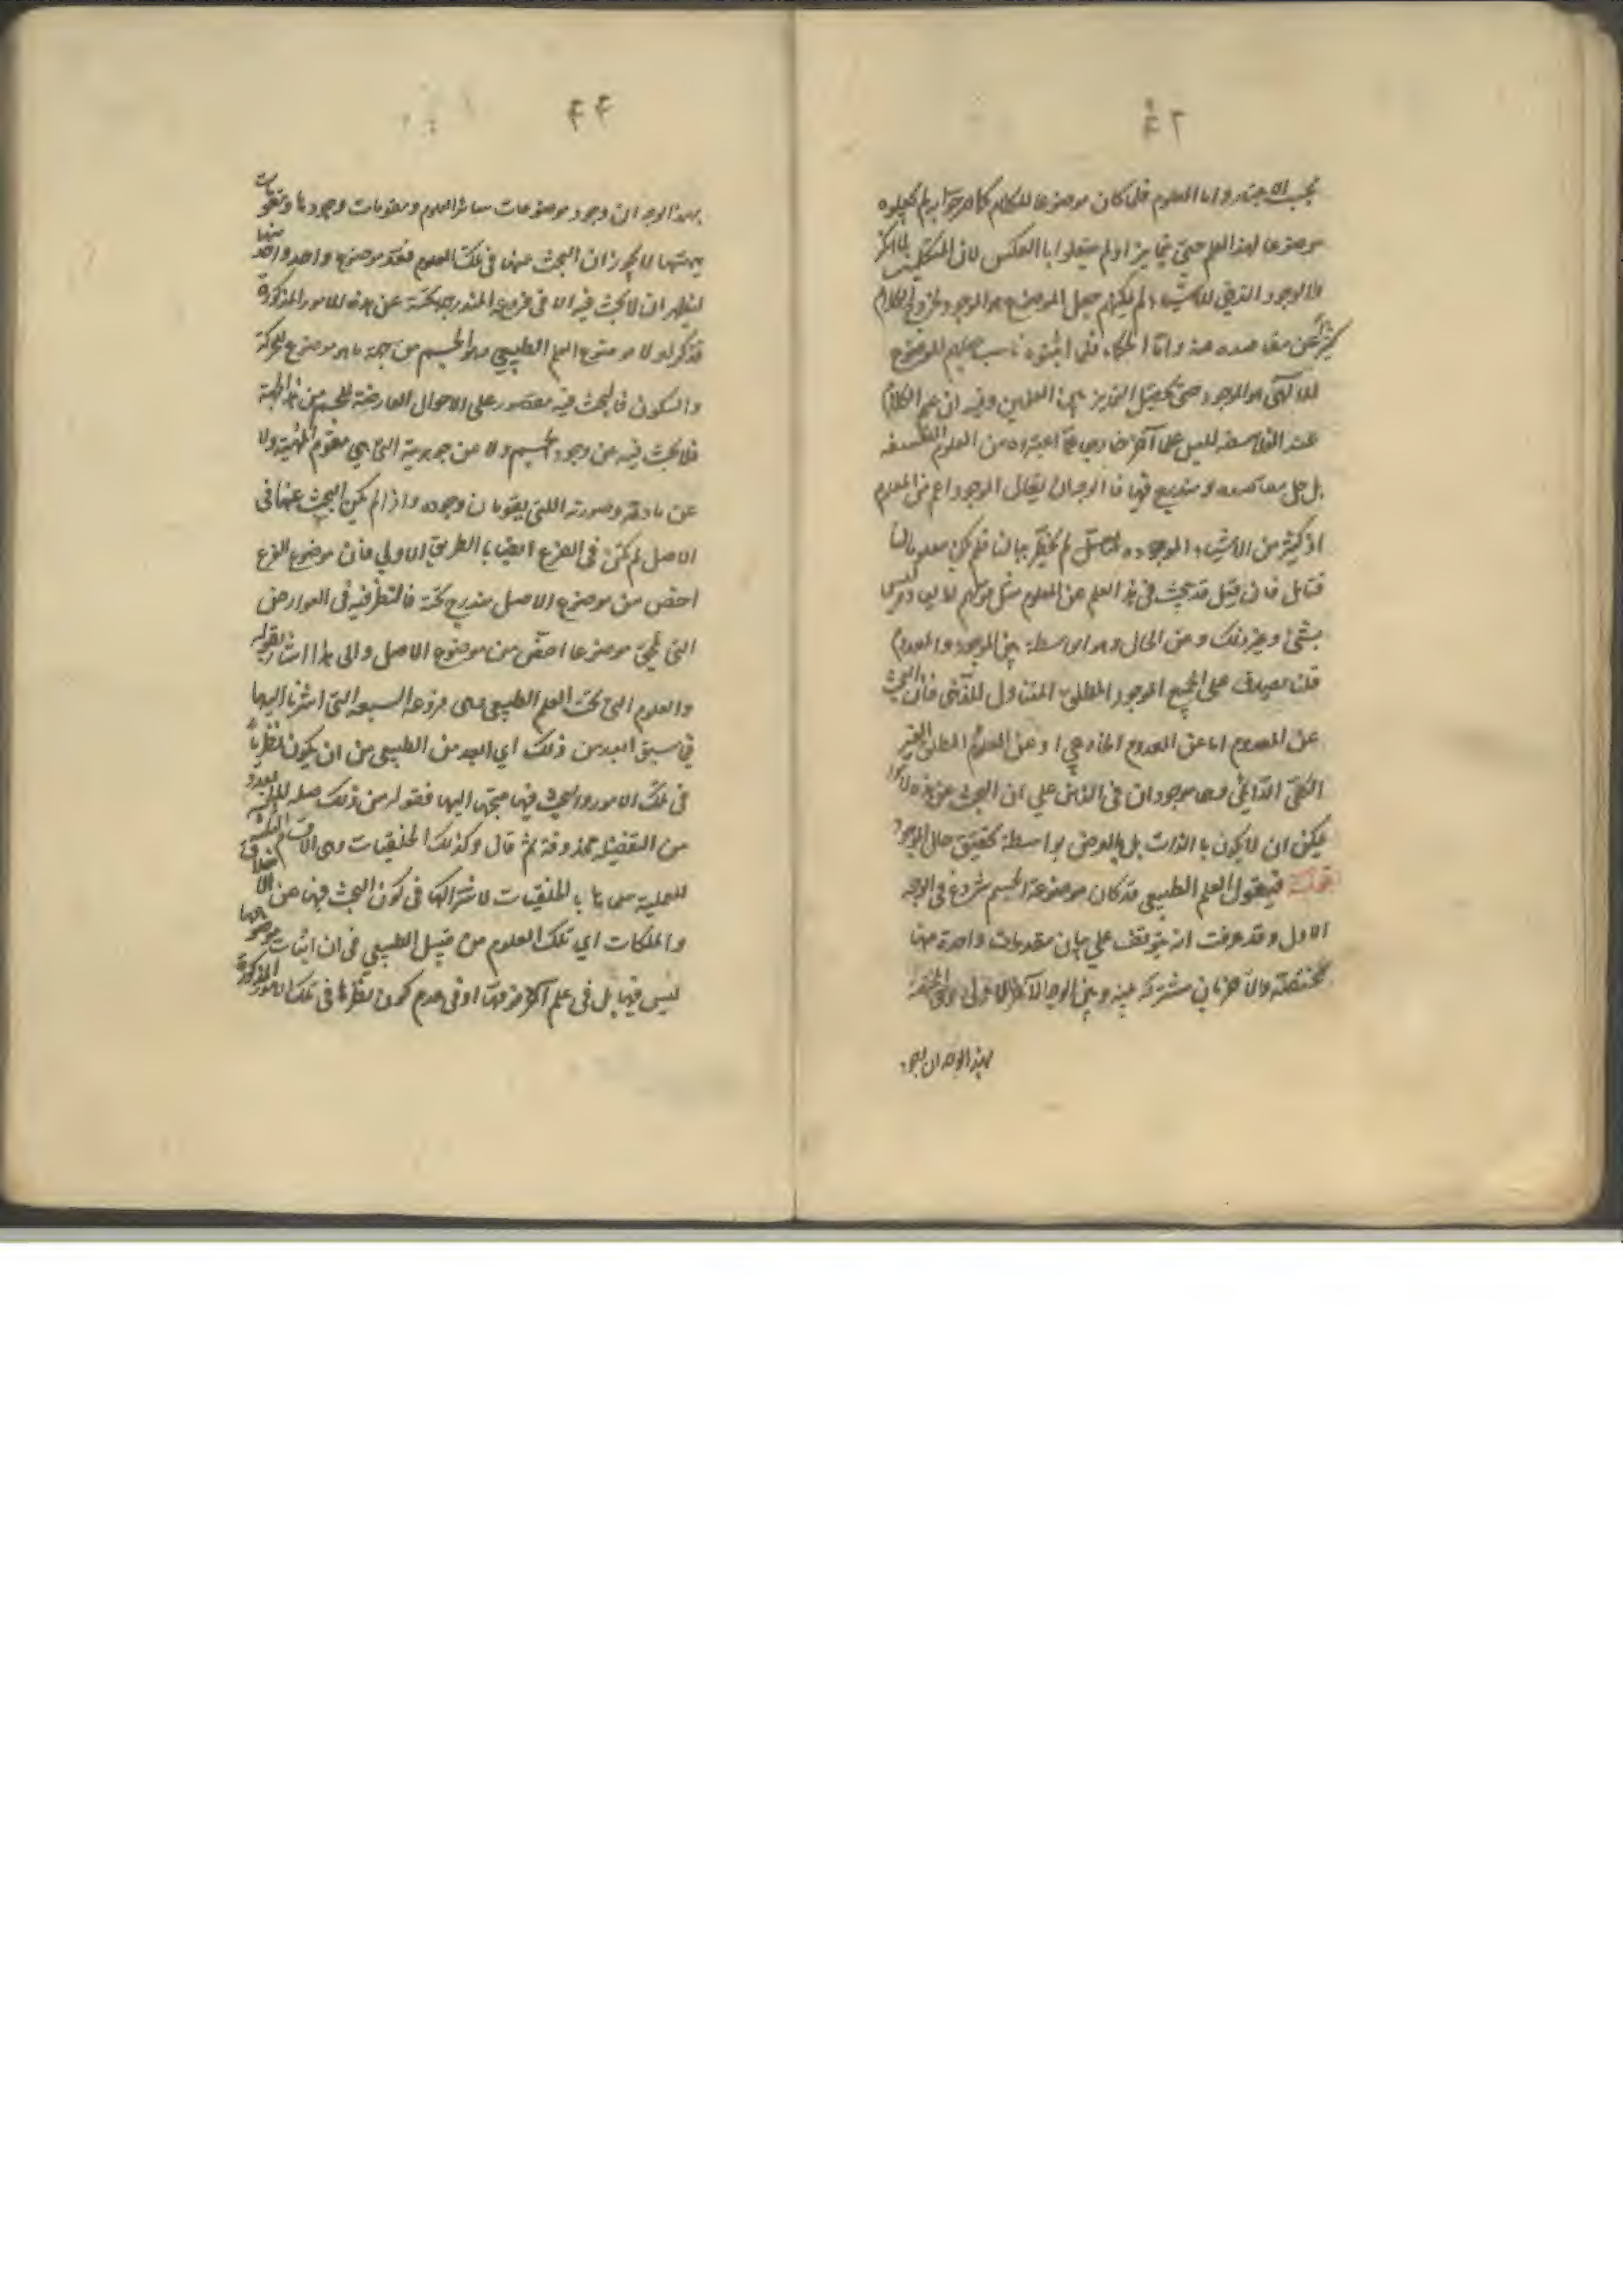 ٤٣
يجب الاجتهاد واما المعلوم فلما كان موضوعا للكلام كما صرحوا به لم يجعلوه
موضوعا لهذا العلم حتى يتمايز اولم يفعلوا بالعكس لان المتكلمين لما انكروا
الوجود الذهني للاشياء لم يمكنهم جعل الموضوع هو الموجود لخروج الكلام
كثير عن مقاصده عنه واما الحكماء فلما اثبتوه ناسب جعلهم الموضوع
للالهي هو الموجود حتى يحصل التمايز بين العلمين وفيه ان علم الكلام
عند الفلاسفه ليس علما آخر خارجا عما اعتبروه من العلوم الفلسفه
بل جل مقاصده مندرج فيها فالوجه ان يقال الموجود اعم من المعلوم
اذ كثير من الاشياء الموجوده لم يخطر ببالنا فلم يكن معلوما لنا
فتأمل فان قيل قد يبحث في هذا العلم عن المعلوم مثل قولهم ليس
بشيء وغير ذلك وعن الحال وهو واسطة بين الموجود والمعدوم
قلنا يصدق على الجميع الموجود المطلق المتناول للذهني فان البحث
عن المعدوم اما عن المعدوم الخارجي او عن المعدوم المطلق الغير
الذهني وهما موجودان في الذهن على ان البحث عن هذه
يمكن ان لا يكون بالذات بل بالعرض بواسطة تحقيق حال الموجود
قوله فنقول العلم الطبيعي قد كان موضوعه الجسم شروع في الوجه
الاول وقد عرفت انه يتوقف على بيان مقدمات واحدة منها
مختصة والاخريان مشتركة بينه وبين الوجه الآخر
بهذا الوجه ان وجود
٤٤
بهذا الوجه ان وجود موضوعات سائر العلوم ومقومات وجودها ومقومات
ماهيتها لا يجوز ان البحث عنها في تلك العلوم فعد موضوع واحد واحد منها
ليظهر ان لا يبحث فيه ولا في فروعه المندرجة تحته عن هذه الامور المذكورة
فذكر اولا موضوع العلم الطبيعي وهو الجسم من جهة ما هو موضوع للحركة
والسكون فالبحث فيه مقصور على الاحوال العارضة للجسم من هذه الجهة
فلا يبحث فيه عن وجود الجسم ولا عن جوهرية التي هي مقوم لماهيته ولا
عن مادته وصورته اللتين يقومان وجوده واذا لم يكن البحث عنها في
الاصل لم يكن في الفرع ايضا بالطريق الاولى فان موضوع الفرع
اخص من موضوع الاصل مندرج تحته فالنظر فيه في العوارض
التي تلحق موضوعا اخص من موضوع الاصل والى هذا اشار بقوله
والعلوم التي تحت العلم الطبيعي وهي فروعه السبعه التي اشرنا اليها
فيما سبق ابعد من ذلك اي ابعد من الطبيعي من ان يكون نظرها
في تلك الامور والبحث فيها متجها اليها فقوله من ذلك صلة للبعد
من التفضيلية محذوفة ثم قال وكذلك الخلقيات وهي الاقسام الثلثة
للعملية سماها بالخلقيات لاشتراكها في كون البحث فيها عن الاخلاق
والملكات اي تلك العلوم من قبيل الطبيعي في ان اثبات موضوعها
ليس فيها بل في علم آخر فوقها او في عدم كون نظرها في تلك الامور المذكورة